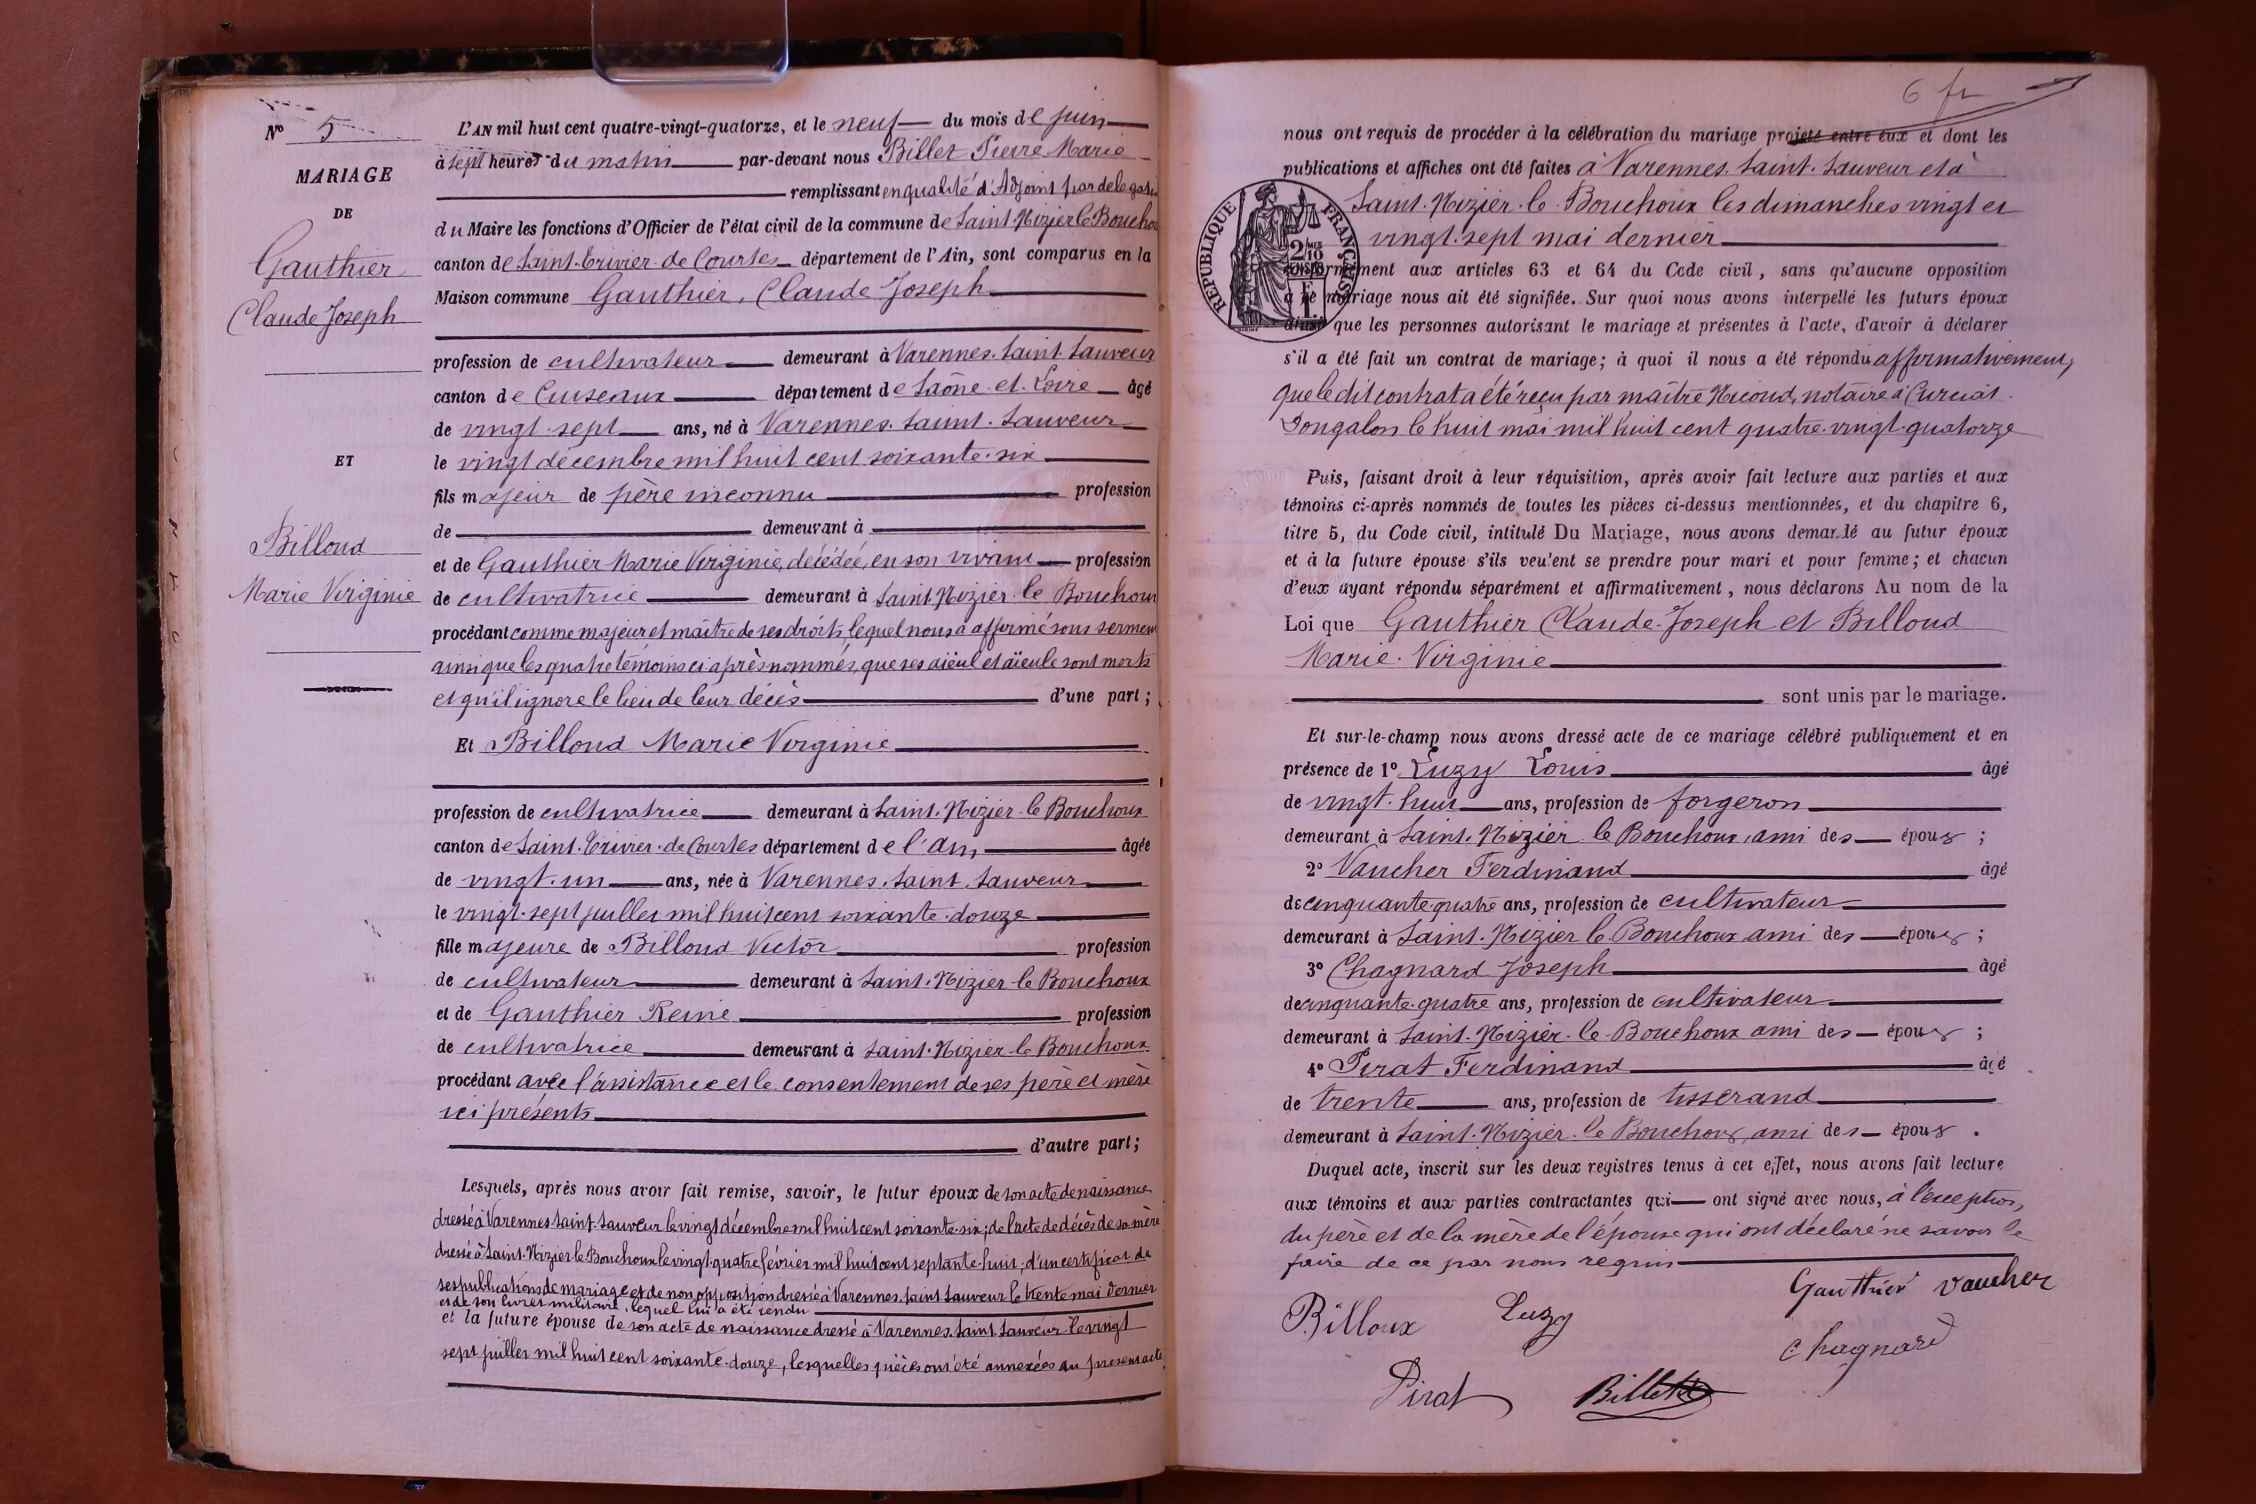 N° 5
MARIAGE
DE
Gauthier
Claude Joseph
ET
Billoud
Marie Virginie
L'AN mil huit cent quatre-vingt-quatorze, et le neuf du mois de juin
à sept heures du matin par-devant nous Billet Pierre Marie
remplissant en qualité d'Adjoint par delegati
du Maire les fonctions d'Officier de l'état civil de la commune de Saint-Nizier le Boucho
canton de Saint-Trivier-de Courtes département de l'Ain, sont comparus en la
Maison commune Gauthier, Claude Joseph
profession de cultivateur demeurant à Varennes-Saint-Sauveur
canton de Cuiseaux département de Saône-et-Loire âgé
de vingt-sept ans, né à Varennes-Saint-Sauveur
le vingt décembre mil huit cent soixante-six
fils majeur de père inconnu profession
de demeurant à
et de Gauthier Marie Virginie, décédée, en son vivant profession
de cultivatrice demeurant à Saint-Nizier-le Bouchoux
procédant comme majeur et maître de ses droits lequel nous a affirmé sous serment
ainsi que les quatre témoins ci-après nommés, que ses aïeul et aïeule sont morts
et qu'il ignore le lieu de leur décès d'une part ;
Et Billoud Marie Virginie
profession de cultivatrice demeurant à Saint-Nizier-le Bouchoux
canton de Saint-Trivier-de Courtes département de l'Ain âgée
de vingt-un ans, née à Varennes-Saint-Sauveur
le vingt-sept juillet mil huit cent soixante-douze
fille majeure de Billoud Victor profession
de cultivateur demeurant à Saint-Nizier-le Bouchoux
et de Gauthier Reine profession
de cultivatrice demeurant à Saint-Nizier-le Bouchoux
procédant avec l'assistance et le consentement de ses père et mère
ici présents
d'autre part ;
Lesquels, après nous avoir fait remise, savoir, le futur époux de son acte de naissance
dressé à Varennes-Saint-Sauveur le vingt décembre mil huit cent soixante-six ; de l'acte de décès de sa mère
dressé à Saint-Nizier le Bouchoux le vingt-quatre février mil huit cent septante-huit ; d'un certificat de
ses publications de mariage et de non opposition dressé à Varennes-Saint-Sauveur le trente mai dernier
et de son livret militaire, lequel lui a été rendu
et la future épouse de son acte de naissance dressé à Varennes-Saint-Sauveur le vingt
sept juillet mil huit cent soixante-douze, lesquelles pièces ont été annexées au présent acte
6 fr
nous ont requis de procéder à la célébration du mariage projeté entre eux et dont les
publications et affiches ont été faites à Varennes-Saint-Sauveur et à
Saint-Nizier-le-Bouchoux les dimanches vingt et
vingt-sept mai dernier
RÉPUBLIQUE FRANÇAISE
conformément aux articles 63 et 64 du Code civil, sans qu'aucune opposition
à ce mariage nous ait été signifiée. Sur quoi nous avons interpellé les futurs époux
ainsi que les personnes autorisant le mariage et présentes à l'acte, d'avoir à déclarer
s'il a été fait un contrat de mariage ; à quoi il nous a été répondu affirmativement,
que le dit contrat a été reçu par maître Nicoud, notaire à Curciat-
Dongalon le huit mai mil huit cent quatre-vingt-quatorze
Puis, faisant droit à leur réquisition, après avoir fait lecture aux parties et aux
témoins ci-après nommés de toutes les pièces ci-dessus mentionnées, et du chapitre 6,
titre 5, du Code civil, intitulé Du Mariage, nous avons demandé au futur époux
et à la future épouse s'ils veulent se prendre pour mari et pour femme ; et chacun
d'eux ayant répondu séparément et affirmativement, nous déclarons Au nom de la
Loi que Gauthier Claude-Joseph et Billoud
Marie-Virginie
sont unis par le mariage.
Et sur-le-champ nous avons dressé acte de ce mariage célébré publiquement et en
présence de 1° Luzy Louis âgé
de vingt-huit ans, profession de forgeron
demeurant à Saint-Nizier le Bouchoux, ami des époux ;
2° Vaucher Ferdinand âgé
de cinquante-quatre ans, profession de cultivateur
demeurant à Saint-Nizier le Bouchoux ami des époux ;
3° Chagnard Joseph âgé
de cinquante-quatre ans, profession de cultivateur
demeurant à Saint-Nizier-le-Bouchoux ami des époux ;
4° Pirat Ferdinand âgé
de trente ans, profession de tisserand
demeurant à Saint-Nizier-le Bouchoux, ami des époux .
Duquel acte, inscrit sur les deux registres tenus à cet effet, nous avons fait lecture
aux témoins et aux parties contractantes qui ont signé avec nous, à l'exception
du père et de la mère de l'épouse qui ont déclaré ne savoir le
faire de ce par nous requis
Gauthier Vaucher
Billoux Luzy
Chagnard
Pirat Billet